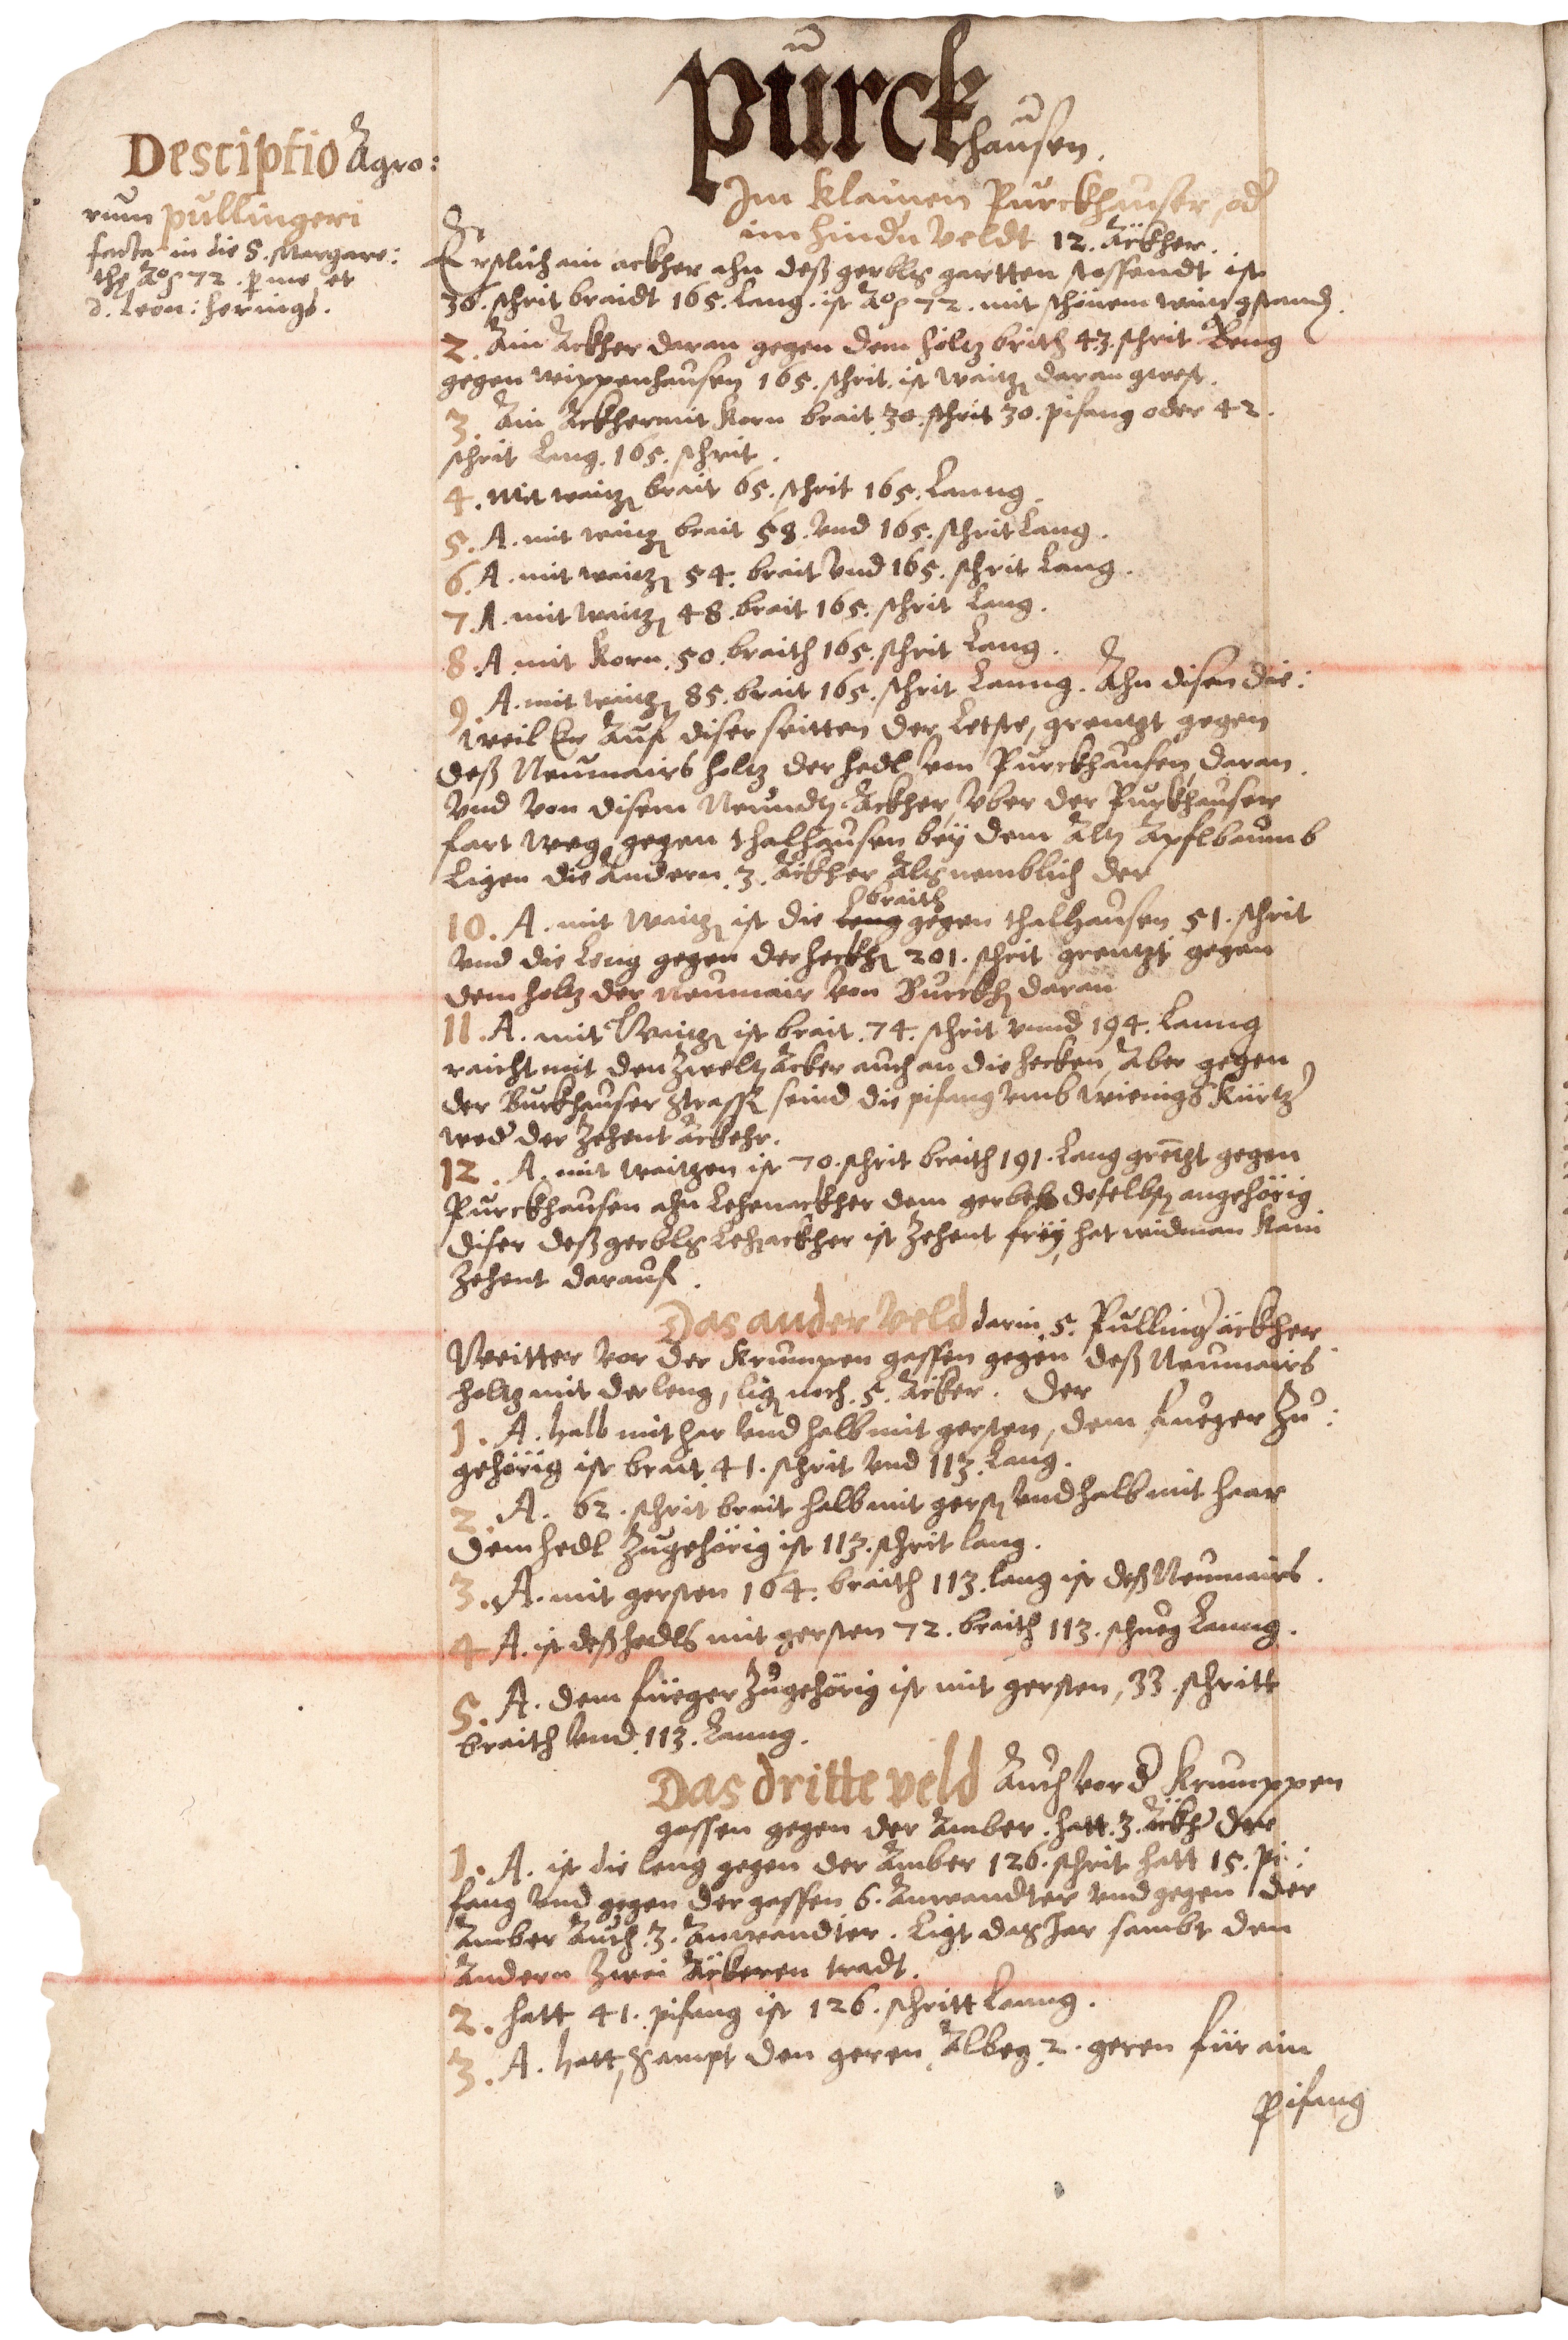 Purckhausen.
Desciptio Agro:
rum pullingeri
facta in die S. Margare:
thę Ao 72. p me et
d. Leon: herings.
Im klainen Purckhauser, od
im hindn Veldt 12. Äckher.
Erstlich ain ackher ahn deß gerbls gartten stossendt ist
36. schrit braidt 165. Lang. ist Ao 72. mit schönem waitz gstand.
2. Ain Ackher daran gegen dem holtz brith 43. schrit Leng
gegen wippenhausen 165. schrit. ist waitz daran gwest.
3. Ain Ackher mit korn brait 30. schrit 30. pifang oder 42.
schrit Lang. 165. schrit.
4. Mit waitz brait 65. schrit 165. Lanng.
5. A. mit waitz brait 58. Vnd 165. schrit Lang.
6. A. mit waitz 54. brait Vnd 165. schrit Lang.
7. A. mit waitz 48. brait 165. schrit Lang.
8. A. mit korn. 50. braith 165. schrit Lang.
9. A. mit waitz 85. brait 165. schrit Lanng. Ahn disen die:
weil Er Auf diser seitten der Letste, grentzt gegen
deß Neumairs holtz der hedl von Purckhausen daran.
Vnd von disem Neundt Ackher, Vber der Purkhauser
fart weg, gegen thalhausen beÿ dem Alt Apflbaumb
Ligen die Andern. 3. Äckher Als nemblich der
10. A. mit waitz ist die leng braith gegen thalhausen 51. schrit
Vnd die Leng gegen der heckh 201. schrit grentzt gegen
dem holtz der Neumair von Burckh daran
11. A. mit Waitz ist brait. 74. schrit vnnd 194. Lanng
raicht mit den Acker auch an die hecken, Aber gegen
der Burkhauser strass seind die pifang vmb wienigs kürtz
wed der Zehent Äckehr.
12. A. mit waitzen ist 70. schrit braith 191. Lang grētzt gegen
Purckhausen ahn Lehenackher dem gerbls doselbst angehörig
diser deß gerbls Lehackher ist Zehent freÿ, hat widman kain
Zehent darauf.
Das ander Veld darin 5. Pulling äckher
Weitter vor der krumpen gassen gegen deß Neumairs
holtz mit der leng, lig noch. 5. Äcker. Der
1. A. halb mit har vnd halb mit gersten, dem füeger Zu:
gehörig ist brait 41. schrit Vnd 113. Lang.
2. A. 62. schrit brait halb mit gerst vnd halb mit haar
dem hedl Zugehörig ist 113. schrit lang.
3. A. mit gersten 104. braith 113. lang ist deß Neumairs.
4 A. ist deß hedls mit gersten 72. braith 113. Lanng.
5. A. dem füeger Zugehörig ist mit gersten, 33. schritt
braith Vnd. 113. Lanng.
Das dritte veld Auch vor d krumppen
gassen gegen der Amber. hatt. 3. Äckh der
1. A. ist die leng gegen der Amber 126. schrit hatt 15. pi:
fang Vnd gegen der gassen 6. Anwandter vnd gegen der
Amber Auch 3. Anwandter. Ligt das Jar sambt den
Andern Zwai Äckeren tradt.
2. hatt 41. pifang ist 126. schritt Lanng.
3. A. hatt, Sampt den geren Albeg 2. geren für ain
pifang